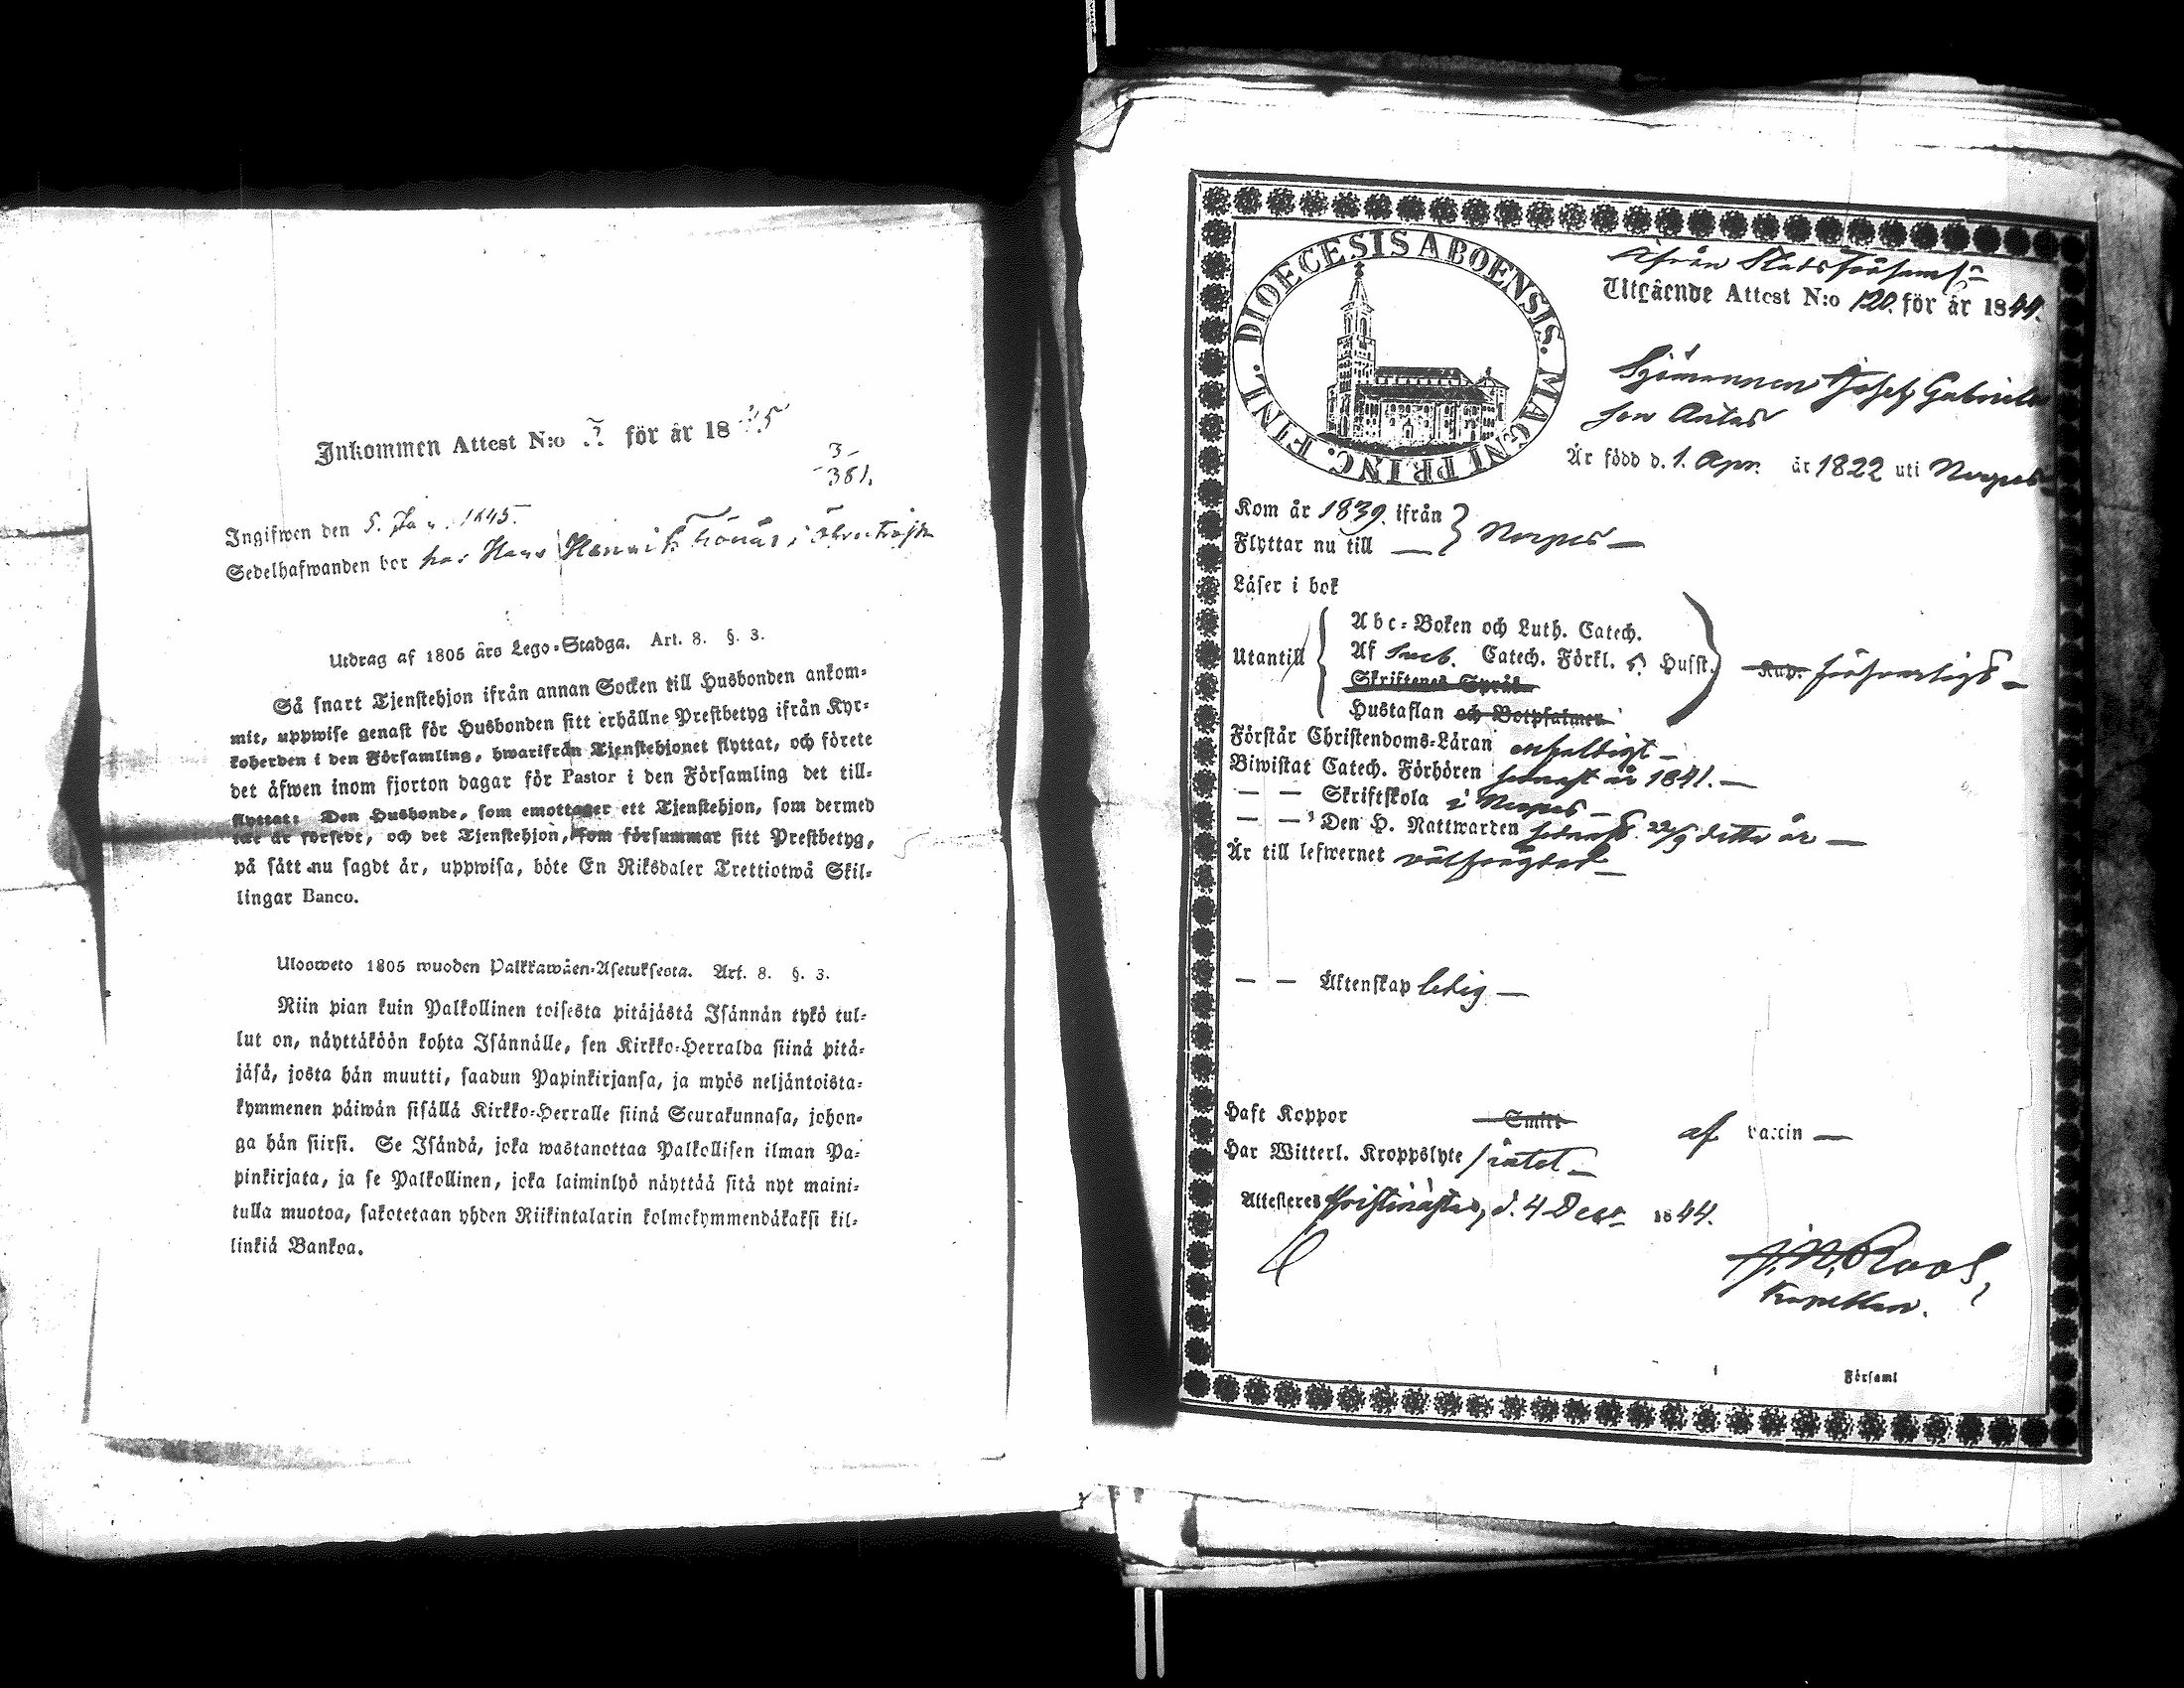 Inkommen Attest N:o 3. för år 1845
3
381.
Ingifwen den 5. Jan. 1845.
Sedelhafwanden bor hos Hans Henrik i
Utdrag af 1805 års Lego-Stadga. Art. 8. §. 3.
Så snart Tjenstehjon ifrån annan Socken till Husbonden ankom-
mit, uppwise genast för Husbonden sitt erhållne Prestbetyg ifrån Kyr-
koherden i den Församling, hwarifrån Tjenstehjonet flyttat, och förete
det äfwen inom fjorton dagar för Pastor i den Församling det till-
flyttat: Den Husbonde, som emottager ett Tjenstehjon, som dermed
icke är försedt, och det Tjenstehjon, som försummar sitt Prestbetyg,
på sätt nu sagdt är, uppwisa, böte En Riksdaler Trettiotwå Skil-
lingar Banco.
Ulosweto 1805 wuoden Palkkawäen-Asetuksesta. Art. 8. §. 3.
Niin pian kuin Palkollinen toisesta pitäjästä Isännän tykö tul-
lut on, näyttäköön kohta Isännälle, sen Kirkko-Herralda siinä pitä-
jäsä, josta hän muutti, saadun Papinkirjansa, ja myös neljäntoista-
kymmenen päiwän sisällä Kirkko-Herralle siinä Seurakunnasa, johon-
ga hän siirsi. Se Isändä, joka wastanottaa Palkollisen ilman Pa-
pinkirjata, ja se Palkollinen, joka laiminlyö näyttää sitä nyt maini-
tulla muotoa, sakotetaan yhden Riikintalarin kolmekymmendäkaksi kil-
linkiä Bankoa.
DIOECESIS ABOENSIS. MAGNI PRINC. FINL.
ifrån Stadsförsaml:
Utgående Attest N:o 120. för år 1844.
Sjömannen Josef Gabriels
son Antas
Är född d. 1. Apr. år 1822 uti Nerpes
Kom år 1839. ifrån
Flyttar nu till — } Nerpes —
Läser i bok
Utantill
Abc-Boken och Luth. Catech.
Af Sveb. Catech. Förkl. 5. Husst. försvarligt —
Skriftenes Språk
Hustaflan och Botpsalmer
Förstår Christendoms-Läran enfaldigt —
Biwistat Catech. Förhören senast år 1841. —
— — Skriftskola i Nerpes —
— — Den H. Nattwarden senast 22/9 detta år —
Är till lefwernet välfrägdad —
— — Äktenskap ledig —
Haft Koppor Smitt af vaccin —
Har Witterl. Kroppslyte intet —
Attesteres Kristinæstad, d. 4 Decr 1844.
J. W. Roos,
Kapellan.
Församl